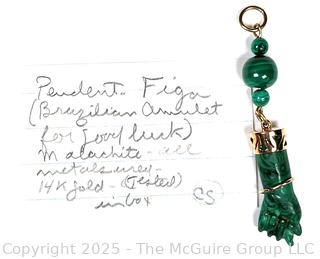 Pendent. Figa
(Brazilian Amulet
for good luck)
Malachite - all
metals used -
14K gold - (Tested)
in box CS
Copyright 2025 - The McGuire Group LLC